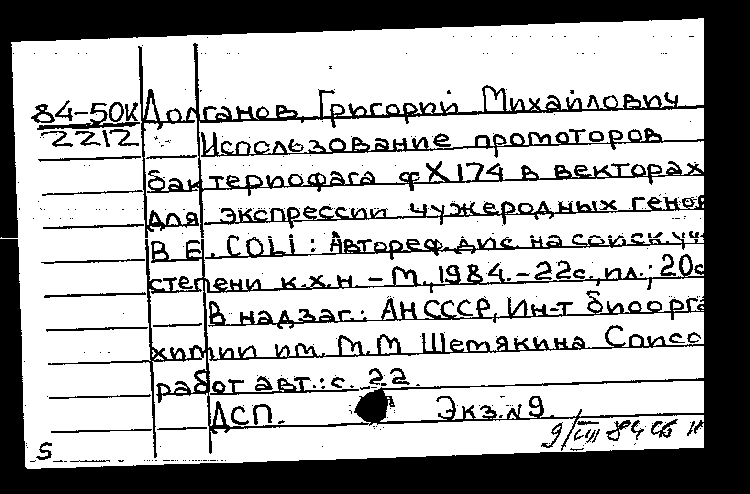 84-50К Долганов, Григорий Михайлович
2212 Использование промоторов
бактериофага φX174 в векторах
для экспрессии чужеродных генов
в E. COLI: Автореф. дис. на соиск. уч
степени к.х.н. - М., 1984. - 22с., ил.; 20с
В надзаг.: АН СССР, Ин-т биоорга
химии им. М.М Шемякина Список
работ авт.: с. 22.
ДСП. Экз. N 9.
9/VIII 84
S